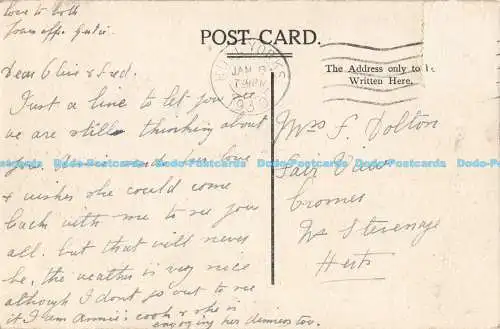 love to both
from
POST CARD.
HULL YORKS
JAN 8
7 PM
1930
The Address only to be
Written Here.
Dear & Fred.
Just a line to let you see
we are still thinking about
you. Annie sends her love
& wishes she could come
back with me to see you
all. but that will never
be. the weather is very nice
although I don't go out to see
it I am Annie's cook & she is
enjoying her dinners too.
Mrs F. Dolton
Fair View
Cromer
Nr Stevenage
Herts
Dodo-Postcards Dodo-Postcards Dodo-Postcards Dodo-Postcards Dodo-Postcards